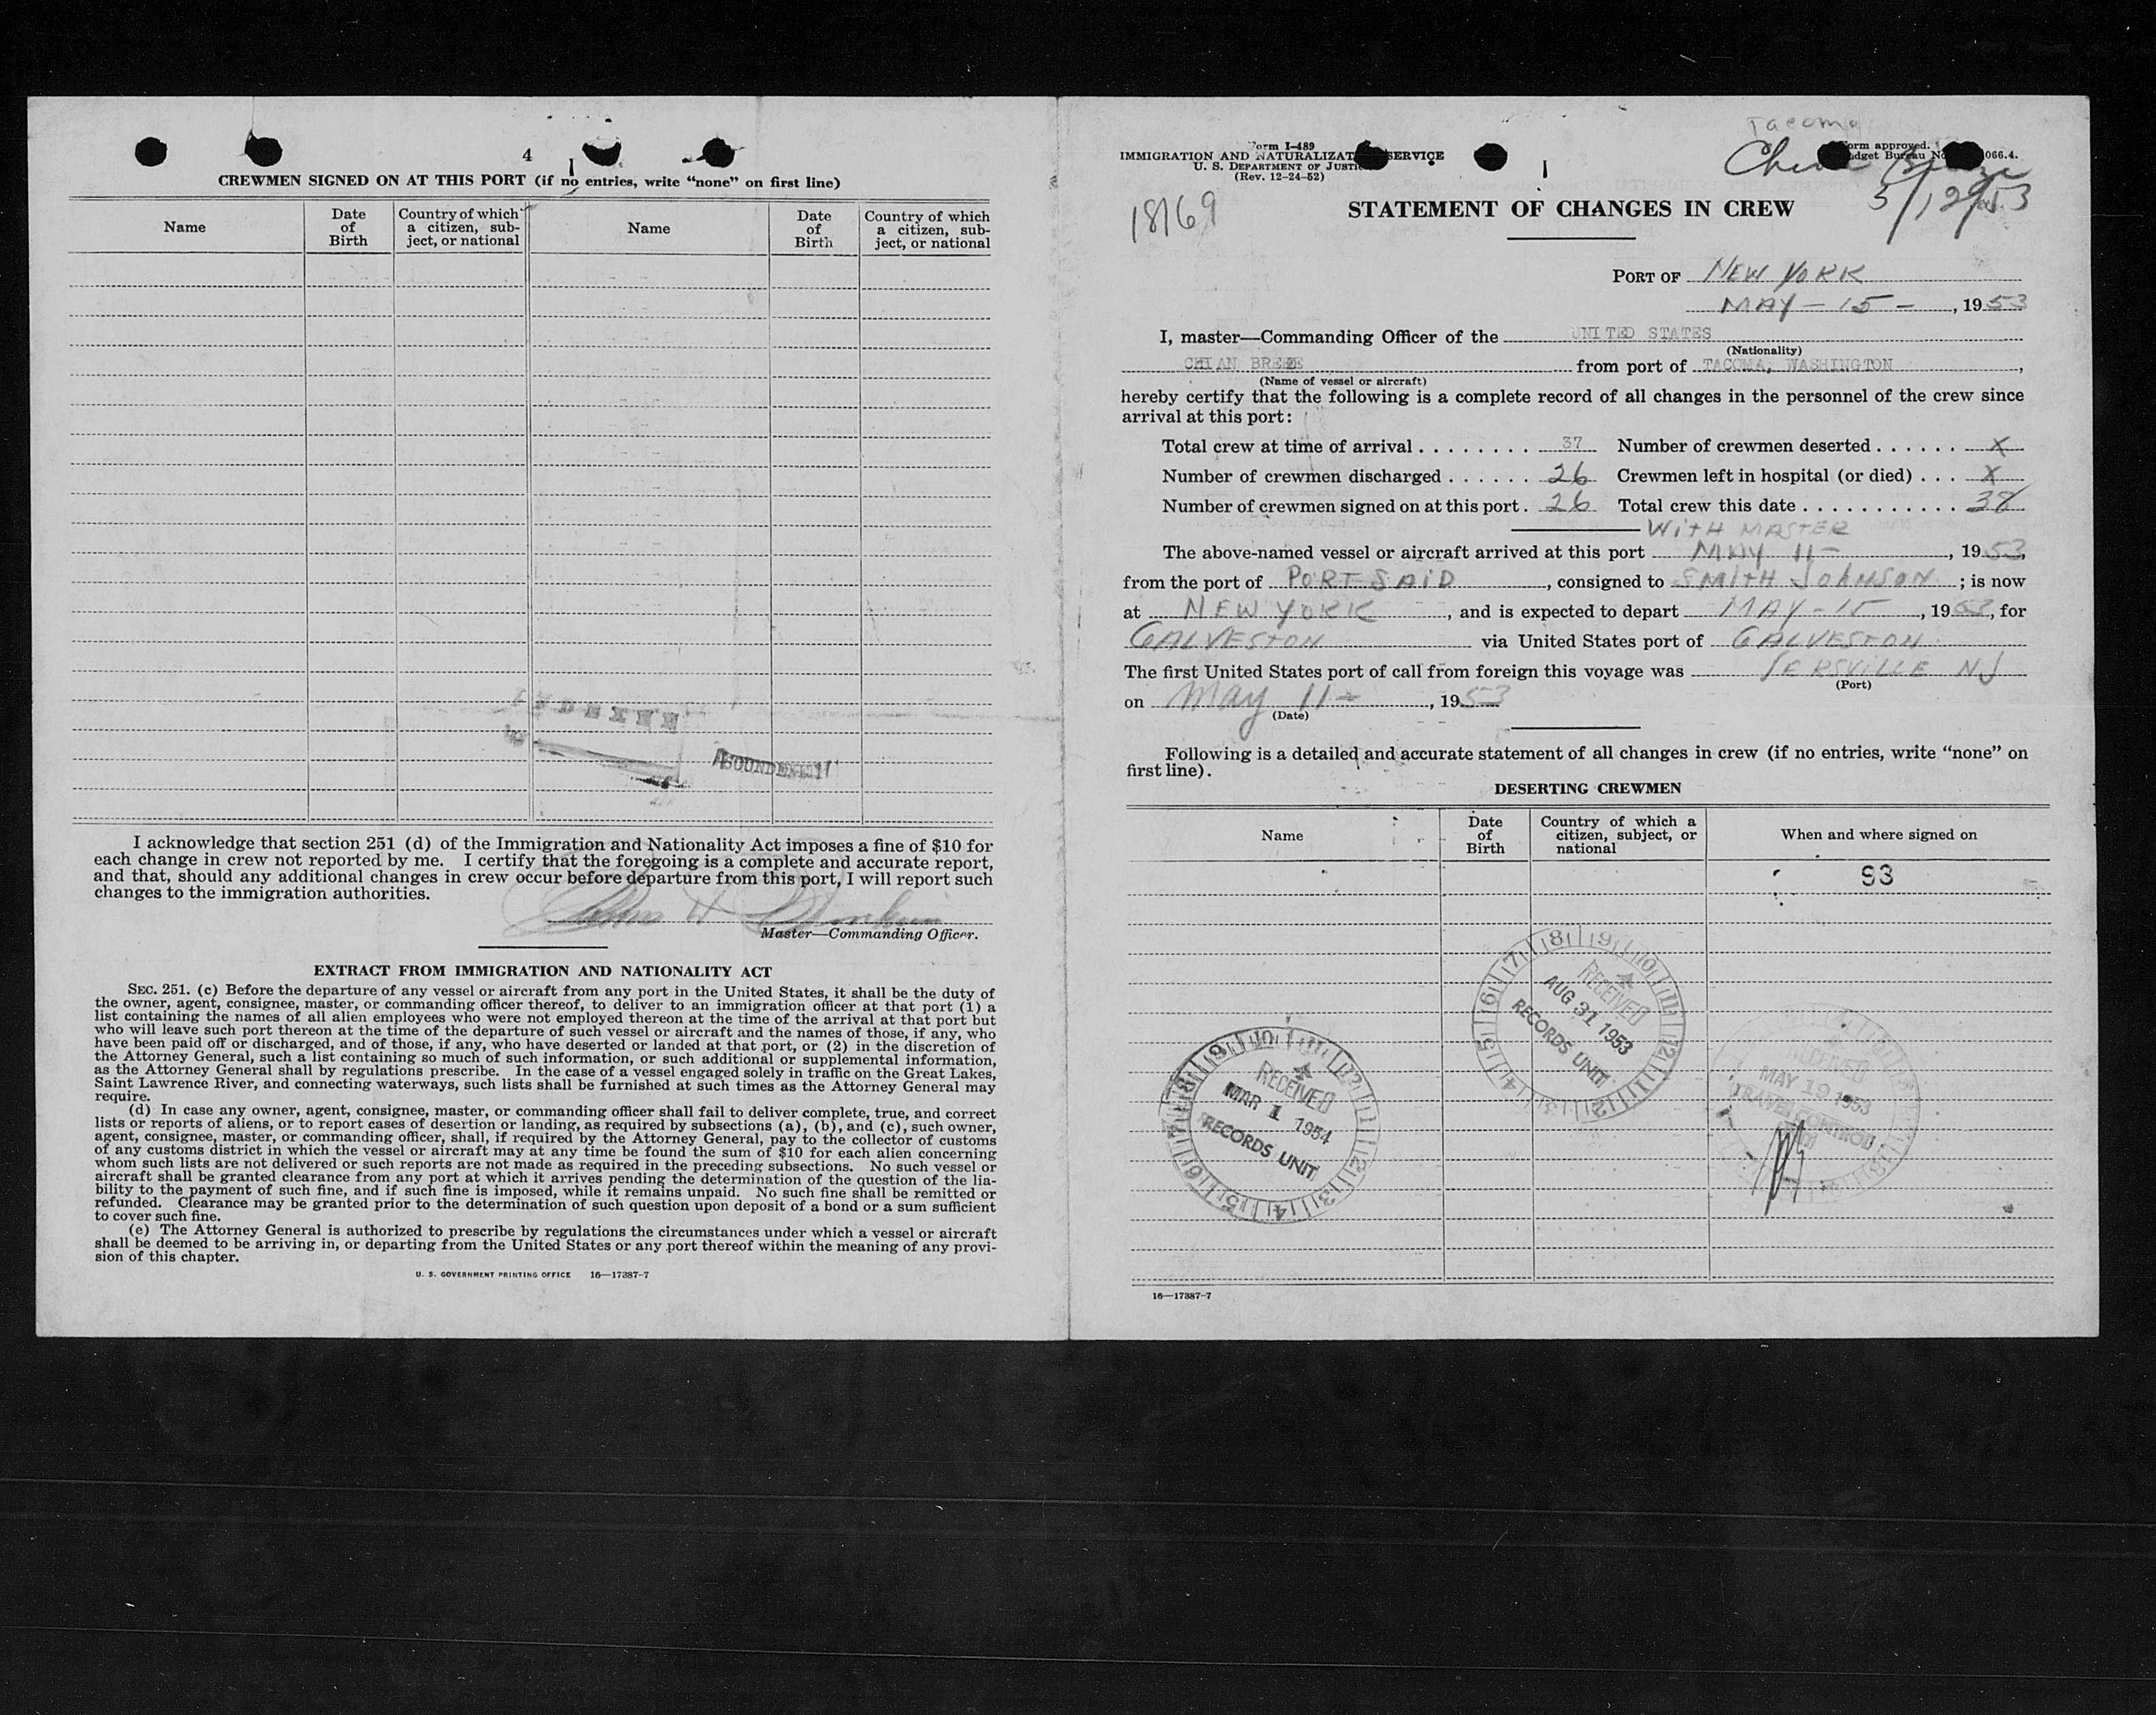 4
CREWMEN SIGNED ON AT THIS PORT (if no entries, write “none” on first line)
Name
Date of Birth
Country of which a citizen, subject, or national
Name
Date of Birth
Country of which a citizen, subject, or national
I acknowledge that section 251 (d) of the Immigration and Nationality Act imposes a fine of $10 for
each change in crew not reported by me. I certify that the foregoing is a complete and accurate report,
and that, should any additional changes in crew occur before departure from this port, I will report such
changes to the immigration authorities.
Master—Commanding Officer.
EXTRACT FROM IMMIGRATION AND NATIONALITY ACT
SEC. 251. (c) Before the departure of any vessel or aircraft from any port in the United States, it shall be the duty of
the owner, agent, consignee, master, or commanding officer thereof, to deliver to an immigration officer at that port (1) a
list containing the names of all alien employees who were not employed thereon at the time of the arrival at that port but
who will leave such port thereon at the time of the departure of such vessel or aircraft and the names of those, if any, who
have been paid off or discharged, and of those, if any, who have deserted or landed at that port, or (2) in the discretion of
the Attorney General, such a list containing so much of such information, or such additional or supplemental information,
as the Attorney General shall by regulations prescribe. In the case of a vessel engaged solely in traffic on the Great Lakes,
Saint Lawrence River, and connecting waterways, such lists shall be furnished at such times as the Attorney General may
require.
(d) In case any owner, agent, consignee, master, or commanding officer shall fail to deliver complete, true, and correct
lists or reports of aliens, or to report cases of desertion or landing, as required by subsections (a), (b), and (c), such owner,
agent, consignee, master, or commanding officer, shall, if required by the Attorney General, pay to the collector of customs
of any customs district in which the vessel or aircraft may at any time be found the sum of $10 for each alien concerning
whom such lists are not delivered or such reports are not made as required in the preceding subsections. No such vessel or
aircraft shall be granted clearance from any port at which it arrives pending the determination of the question of the lia-
bility to the payment of such fine, and if such fine is imposed, while it remains unpaid. No such fine shall be remitted or
refunded. Clearance may be granted prior to the determination of such question upon deposit of a bond or a sum sufficient
to cover such fine.
(e) The Attorney General is authorized to prescribe by regulations the circumstances under which a vessel or aircraft
shall be deemed to be arriving in, or departing from the United States or any port thereof within the meaning of any provi-
sion of this chapter.
U. S. GOVERNMENT PRINTING OFFICE 16—17387-7
Tacoma
Form I-489
IMMIGRATION AND NATURALIZATION SERVICE
U. S. DEPARTMENT OF JUSTICE
(Rev. 12-24-52)
Form approved.
Budget Bureau No. 066.4.
5/12/53
18169
STATEMENT OF CHANGES IN CREW
PORT OF NEW YORK
MAY - 15 - , 1953
I, master—Commanding Officer of the UNITED STATES
(Nationality)
from port of TACOMA, WASHINGTON,
(Name of vessel or aircraft)
hereby certify that the following is a complete record of all changes in the personnel of the crew since
arrival at this port:
Total crew at time of arrival . . . . . . . . 37 Number of crewmen deserted . . . . . . X
Number of crewmen discharged . . . . . . 26 Crewmen left in hospital (or died) . . . X
Number of crewmen signed on at this port . 26 Total crew this date . . . . . . . . . . . 38
WITH MASTER
The above-named vessel or aircraft arrived at this port MAY 11 - , 1953,
from the port of PORT SAID, consigned to SMITH JOHNSON; is now
at NEW YORK, and is expected to depart MAY - 15, 1953, for
GALVESTON via United States port of GALVESTON
The first United States port of call from foreign this voyage was NJ
(Port)
on May 11 - , 1953
(Date)
Following is a detailed and accurate statement of all changes in crew (if no entries, write “none” on
first line).
DESERTING CREWMEN
Name
Date of Birth
Country of which a citizen, subject, or national
When and where signed on
93
RECEIVED
AUG 31 1953
RECORDS UNIT
RECEIVED
MAR 1 1954
RECORDS UNIT
RECEIVED
MAY 19 1953
TRAVEL CONTROL
16—17387-7